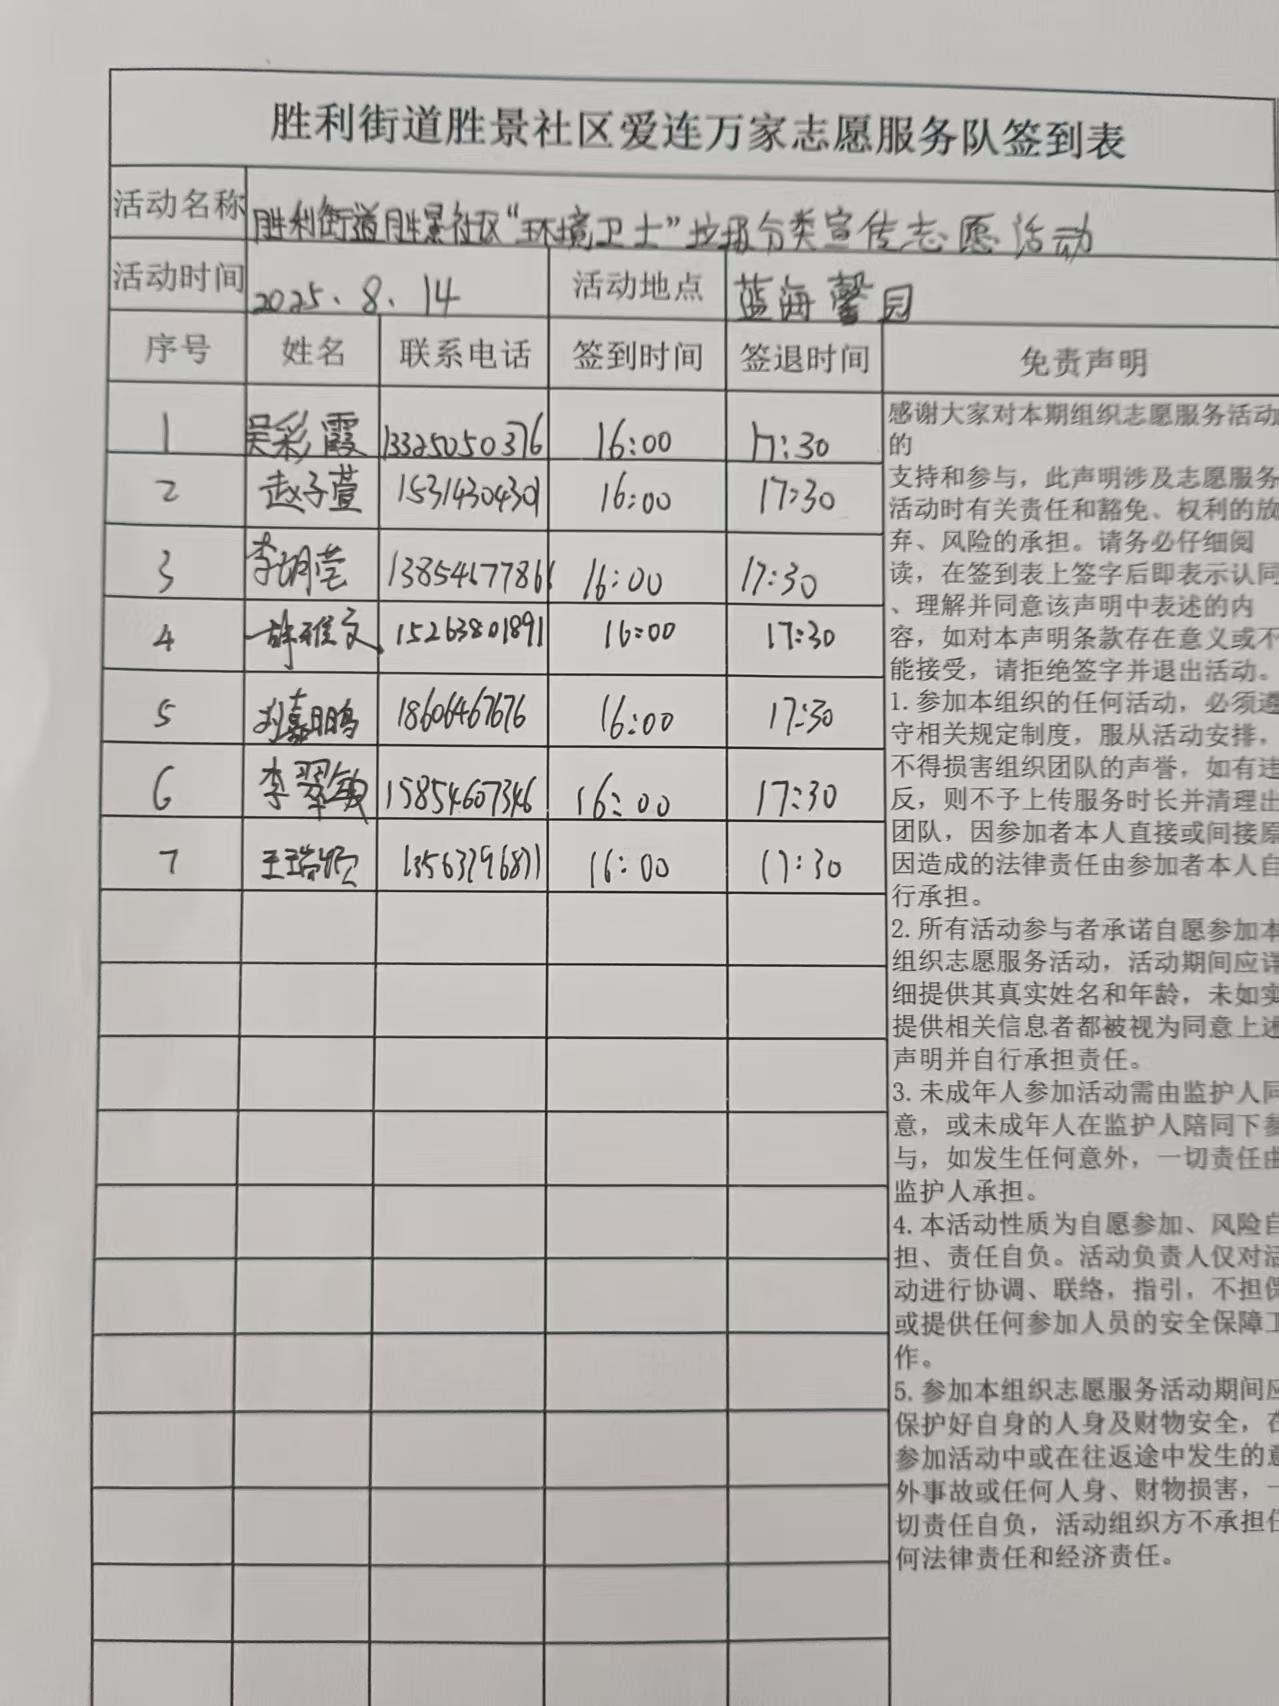 胜利街道胜景社区爱连万家志愿服务队签到表
活动名称 胜利街道胜景社区“环境卫士”垃圾分类宣传志愿活动
活动时间 2025.8.14 活动地点 蓝海馨园
序号 姓名 联系电话 签到时间 签退时间 免责声明
1 吴彩霞 13325050376 16:00 17:30
2 赵子萱 15314304301 16:00 17:30
3 李明莹 13854677866 16:00 17:30
4 许雅文 15263801891 16:00 17:30
5 刘嘉鹏 18606467676 16:00 17:30
6 李翠敏 15854607346 16:00 17:30
7 16:00 17:30
感谢大家对本期组织志愿服务活动
的
支持和参与，此声明涉及志愿服务
活动时有关责任和豁免、权利的放
弃、风险的承担。请务必仔细阅
读，在签到表上签字后即表示认同
、理解并同意该声明中表述的内
容，如对本声明条款存在意义或不
能接受，请拒绝签字并退出活动。
1.参加本组织的任何活动，必须遵
守相关规定制度，服从活动安排，
不得损害组织团队的声誉，如有违
反，则不予上传服务时长并清理出
团队，因参加者本人直接或间接原
因造成的法律责任由参加者本人自
行承担。
2.所有活动参与者承诺自愿参加本
组织志愿服务活动，活动期间应详
细提供其真实姓名和年龄，未如实
提供相关信息者都被视为同意上述
声明并自行承担责任。
3.未成年人参加活动需由监护人同
意，或未成年人在监护人陪同下参
与，如发生任何意外，一切责任由
监护人承担。
4.本活动性质为自愿参加、风险自
担、责任自负。活动负责人仅对活
动进行协调、联络，指引，不担保
或提供任何参加人员的安全保障工
作。
5.参加本组织志愿服务活动期间应
保护好自身的人身及财物安全，在
参加活动中或在往返途中发生的意
外事故或任何人身、财物损害，一
切责任自负，活动组织方不承担任
何法律责任和经济责任。